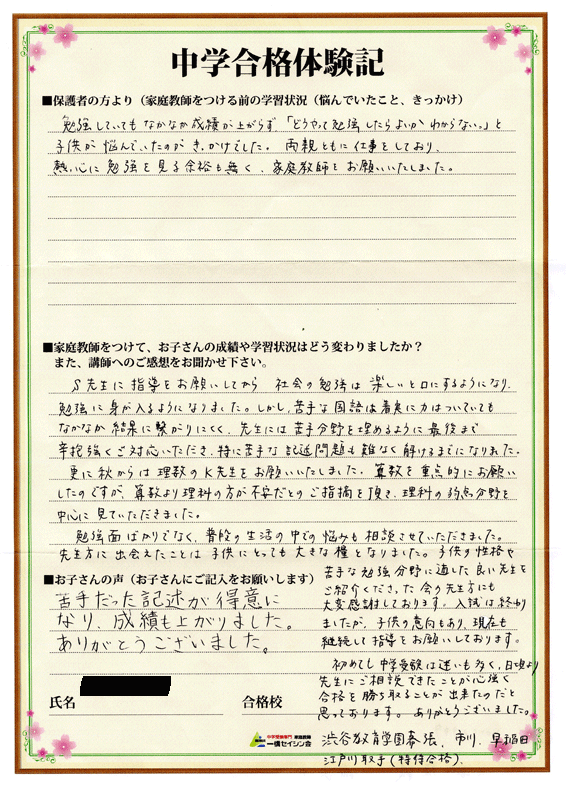 中学合格体験記
■保護者の方より（家庭教師をつける前の学習状況（悩んでいたこと、きっかけ）
勉強していてもなかなか成績が上がらず「どうやって勉強したらよいかわからない。」と
子供が悩んでいたのがきっかけでした。両親ともに仕事をしており、
熱心に勉強を見る余裕も無く、家庭教師をお願いいたしました。
■家庭教師をつけて、お子さんの成績や学習状況はどう変わりましたか？
また、講師へのご感想をお聞かせ下さい。
S先生に指導をお願いしてから 社会の勉強は楽しいと口にするようになり、
勉強に身が入るようになりました。しかし、苦手な国語は着実に力はついていても
なかなか結果に繋がりにくく、先生には苦手分野を埋めるように最後まで
辛抱強くご対応いただき、特に苦手な記述問題も難なく解けるまでになりました。
更に秋からは理数のK先生をお願いいたしました。算数を重点的にお願い
したのですが、算数より理科の方が不安だとのご指摘を頂き、理科の弱点分野を
中心に見ていただきました。
勉強面ばかりでなく、普段の生活の中での悩みも相談させていただきました。
先生方に出会えたことは子供にとっても大きな糧となりました。子供の性格や
苦手な勉強分野に適した良い先生を
ご紹介くださった会の先生方にも
大変感謝しております。入試は終わり
ましたが、子供の意向もあり、現在も
継続して指導をお願いしております。
初めてし中学受験は迷いも多く、日頃より
先生にご相談できたことが心強く
合格を勝ち取ることが出来たのだと
思っております。ありがとうございました。
■お子さんの声（お子さんにご記入をお願いします）
苦手だった記述が得意に
なり、成績も上がりました。
ありがとうございました。
氏名
合格校
渋谷教育学園幕張、市川、早稲田
江戸川取手(特待合格)、
中学受験専門 家庭教師
一橋セイシン会